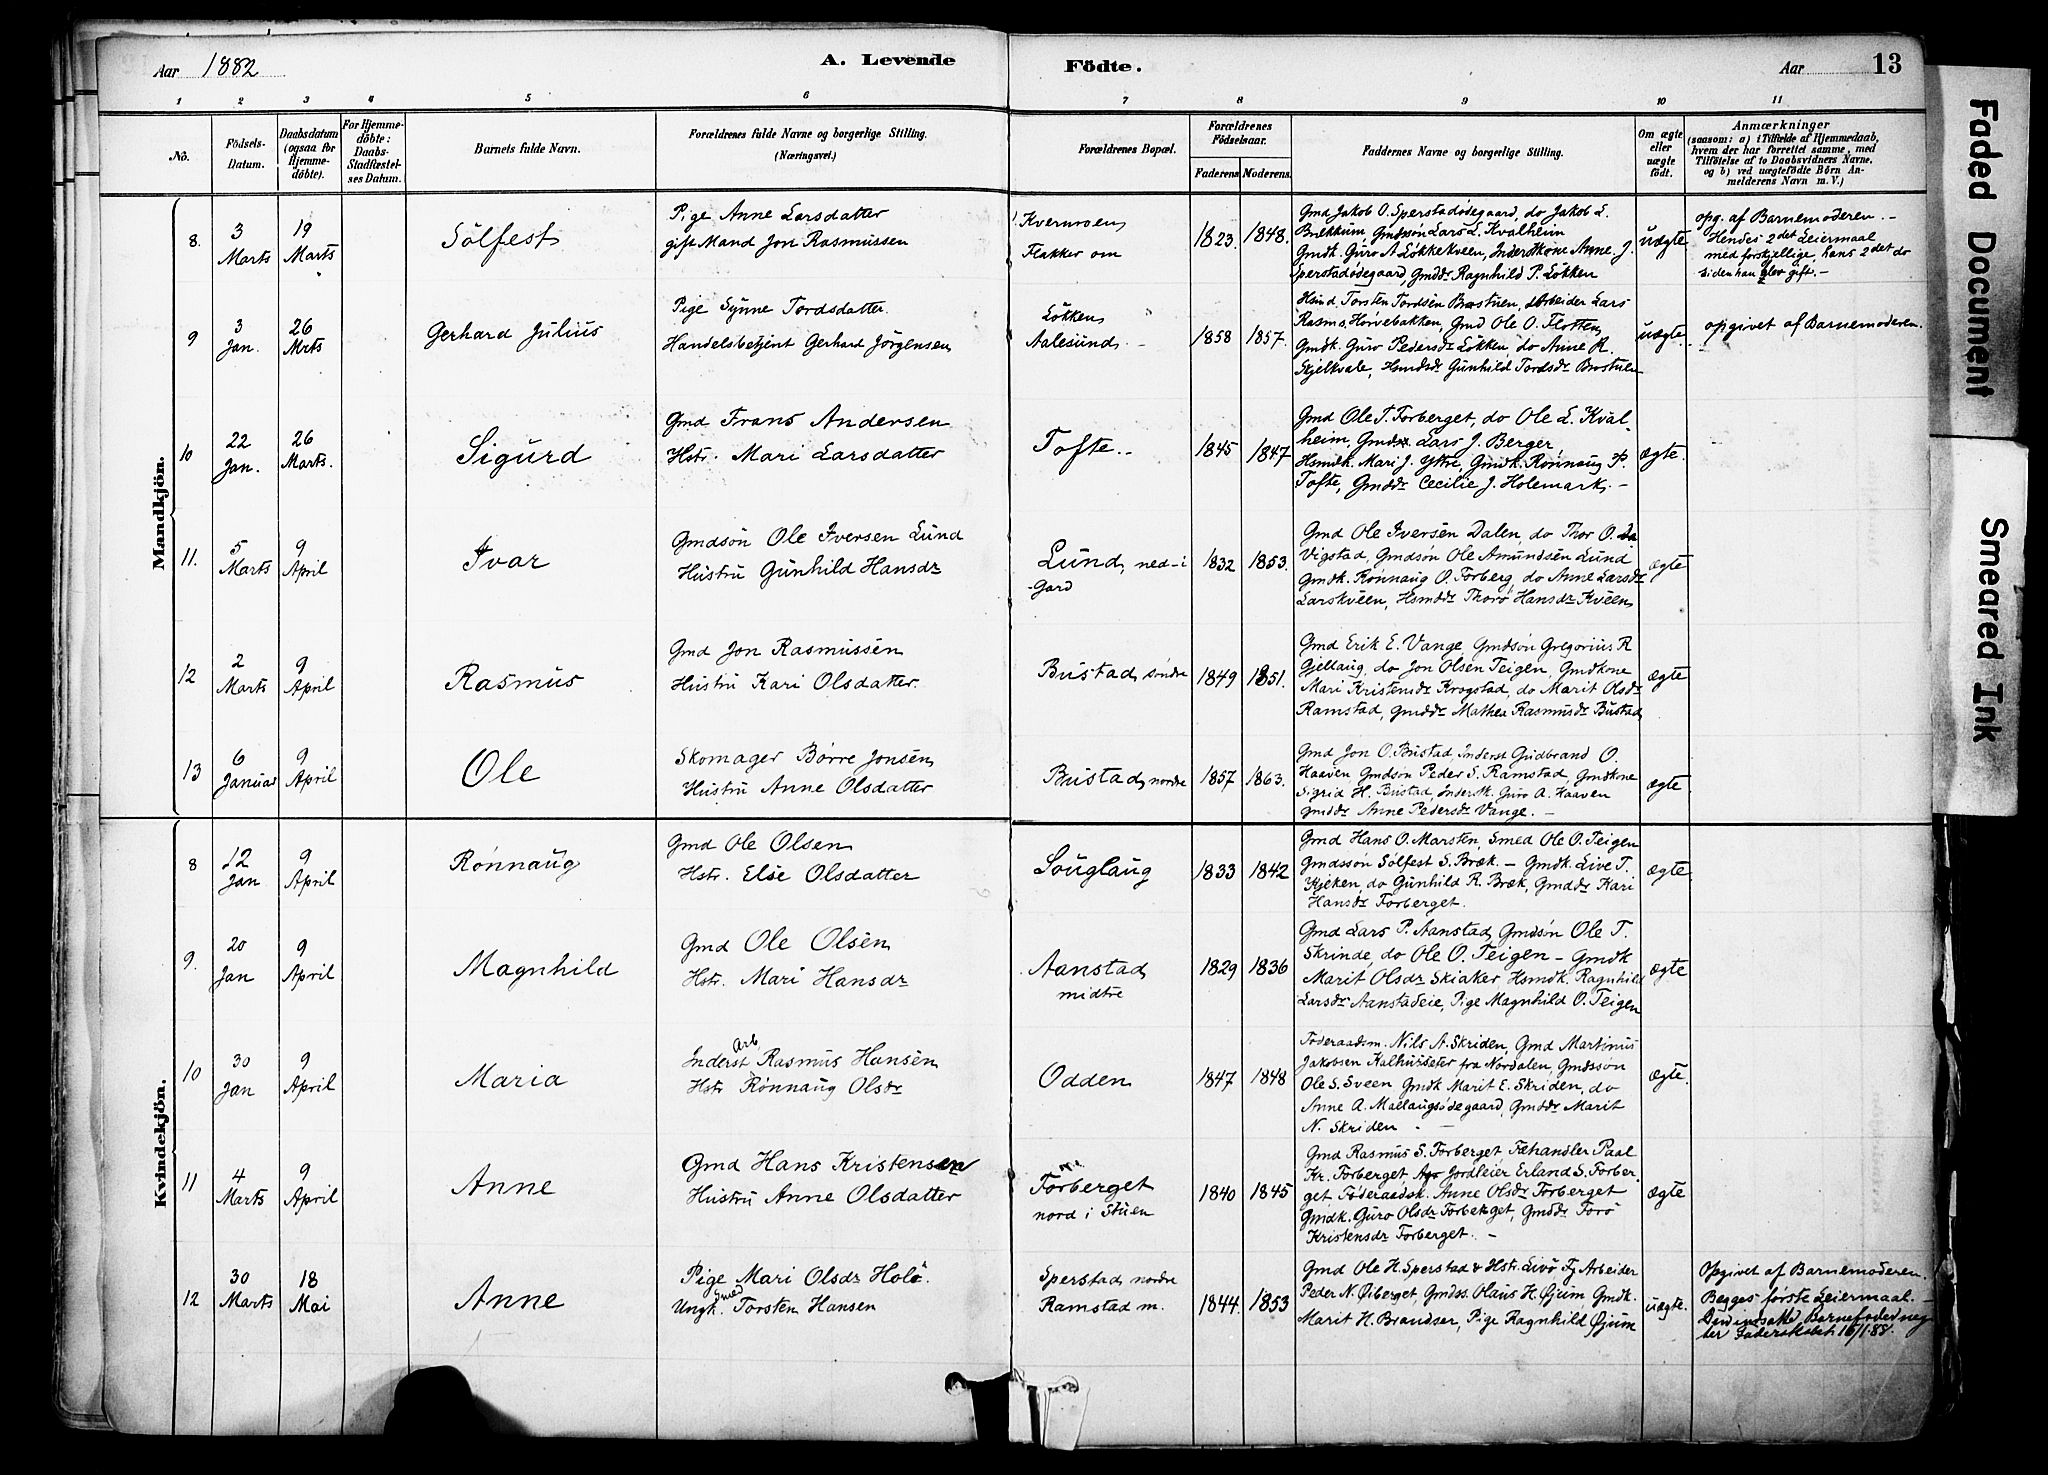 Aar 1882
A. Levende
Födte.
Aar
13
1 2 3 4 5 6 7 8 9 10 11
No.
Födsels-Datum.
Daabsdatum (ogsaa for Hjemmedöbte).
For Hjemmedöbte: Daabs-Stadfæstelses Datum.
Barnets fulde Navn.
Forældrenes fulde Navne og borgerlige Stilling.
(Næringsvei.)
Forældrenes Bopæl.
Forældrenes Födselsaar.
Faderens. Moderens.
Faddernes Navne og borgerlige Stilling.
Om ægte eller uægte födt.
Anmærkninger
(saasom: a) i Tilfælde af Hjemmedaab,
hvem der har forrettet samme, med
Tilföielse af to Daabsvidners Navne,
og b) ved uægtefödte Börn An-
melderens Navn m. V.)
Mandkjön.
8. 3 Marts 19 Marts Sölfest
Pige Anne Larsdatter
gift Mand Jon Rasmussen
Kvernroen
Flakker om
1823 1848.
Gmd Jakob O. Sperstadödegaard, do Jakob L.
Brekkum Gmdssön Lars L. Kvalheim
Gmdk. Guro A Lökkekveen, Inderstkone Anne J.
Sperstadödegaard, Gmddr Ragnhild P. Lökken
uægte
opg. af Barnemoderen. -
Hendes 2det Leiermaal
med forskjellige, hans 2det do
siden han blev gift. -
9 3 Jan. 26 Mrts Gerhard Julius
Pige Synne Tordsdatter.
Handelsbetjent Gerhard Jörgensen
Lökken
Aalesund. -
1858 1857.
Hsmd Torsten Tordsen Brostuen, Arbeider Lars
Rasms. Hörvebakken, Gmd Ole O. Flotten
Gmdk. Guro Pedersdr Lökken, do Anne R.
Skjelkvale, Hsmdsdr Gunhild Tordsdr Brostuen
uægte.
opgivet af Barnemoderen.
10 22 Jan. 26 Marts. Sigurd
Gmd Frans Andersen
Hstr. Mari Larsdatter
Tofte. -
1845 1847
Gmd Ole T. Forberget, do Ole L. Kval-
heim, Gmds Lars J. Berger
Hsmdk. Mari J. Yttre, Gmdk. Rönnaug P.
Tofte, Gmddr Cecilie J. Holemark. -
ægte.
11. 5 Marts 9 April Ivar
Gmdsön Ole Iversen Lund
Hustru Gunhild Hansdr
Lund, ned-i
-gard
1832 1853.
Gmd Ole Iversen Dalen, do Thor O.
Vigstad, Gmdsön Ole Amundsen Lund
Gmdk. Rönnaug O. Forberg, do Anne Larsdr
Larskveen, Hsmddr Thorö Hansdr Kveen
ægte
12 2 Marts 9 April Rasmus
Gmd Jon Rasmussen
Hustru Kari Olsdatter.
Bustad söndre
1849 1851.
Gmd Erik E. Vange, Gmdsön Gregorius R
Gjellaug, do Jon Olsen Teigen, Gmdkone
Mari Kristensdr Krogstad, do Marit Olsdr
Ramstad, Gmddr Mathea Rasmusdr Bustad
ægte
13 6 Januar 9 April Ole
Skomager Börre Jonsen
Hustru Anne Olsdatter
Bustad nordre
1857 1863.
Gmd Jon O. Bustad, Inderst Gudbrand O.
Haaven Gmdsön Peder S. Ramstad, Gmdkone
Sigrid H. Bustad, Inderstk. Guro A. Haaven
gmddr Anne Pedersdr Vange. -
ægte
Kvindekjön.
8 12 Jan 9 April Rönnaug
Gmd Ole Olsen
Hstr. Else Olsdatter
Souglaug
1833 1842
Gmd Hans O. Marsten, Smed Ole O. Teigen
Gmdssön Sölfest S. Bræk. - Gmdk. Live T.
Kjeken, do Gunhild R. Bræk, Gmddr Kari
Hansdr Forberget.
ægte
9. 20 Jan 9 April Magnhild
Gmd Ole Olsen
Hstr. Mari Hansdr
Aanstad
midtre
1829 1836
Gmd Lars P. Aanstad, Gmdsön Ole T.
Skrinde, do Ole O. Teigen - Gmdk
Marit Olsdr Skiaker Hsmdk. Ragnhild
Larsdr Aanstadeie, Pige Magnhild O. Teigen
ægte
10 30 Jan 9 April Maria
Arb.
Inderst Rasmus Hansen
Hstr Rönnaug Olsdr
Odden
1847 1848
Föderaadsm. Nils A. Skriden, Gmd Martinus
Jakobsen Kalhusseter fra Nordalen, Gmdssön
Ole S. Sveen Gmdk Marit E. Skriden, do
Anne A. Mallaugsödegaard, Gmddr Marit
N. Skriden. -
ægte.
11 4 Marts 9 April Anne
Gmd Hans Kristensen
Hustru Anne Olsdatter
Forberget
nord i Stuen
1840 1845
Gmd Rasmus S. Forberget, Fæhandler Paal
Kr. Forberget, Jordleier Erland S. Forber-
get Föderaadsk. Anne Olsdr Forberget
Gmdk. Guro Olsdr Forberget, Gmddr Torö
Kristensdr Forberget. -
ægte
12 30 Marts 18 Mai Anne
Pige Mari Olsdr Holö.
Ungk. Smed Torsten Hansen
Sperstad nordre
Ramstad m.
1844. 1853
Gmd Ole H. Sperstad & Hstr. Livö Fj. Arbeider
Peder N. Öiberget, Gmdss. Olaus H. Öjum Gmdk.
Marit H. Brandser, Pige Ragnhild Öjum
uægte.
Opgivet af Barnemoderen.
Begges förste Leiermaal. -
Den indsatte Barnefader neg-
ter Faderskabet 16/1 88.
Faded Document
Smeared Ink